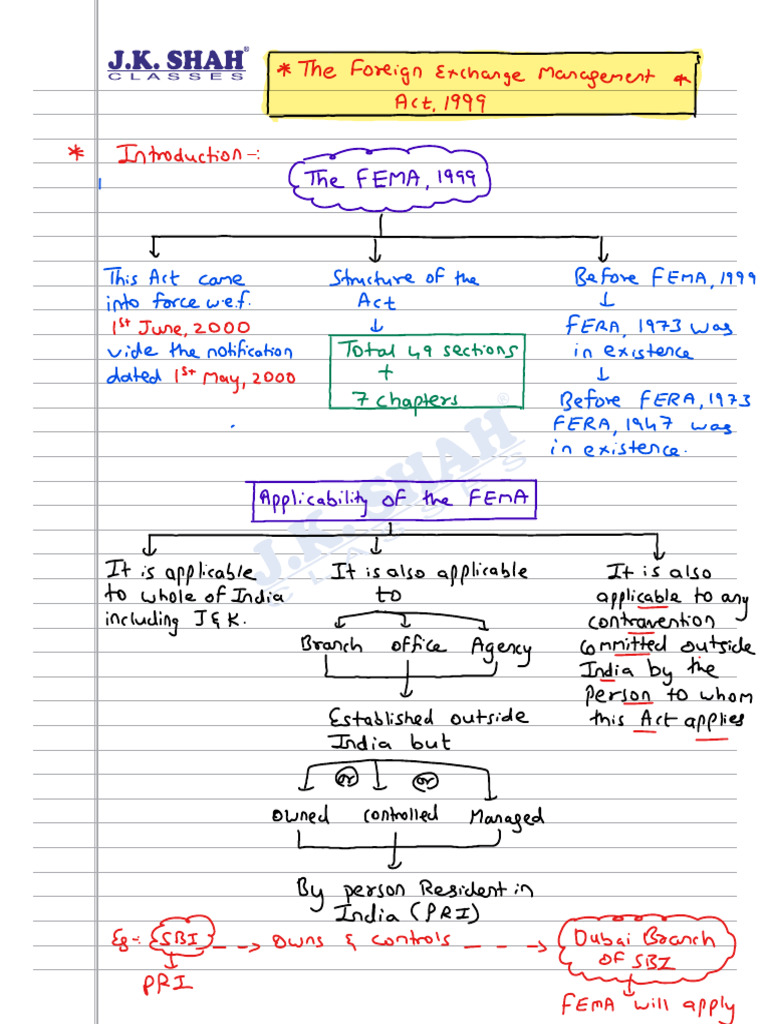 J.K. SHAH®
CLASSES
* The Foreign Exchange Management *
Act, 1999
* Introduction -:
The FEMA, 1999
This Act came
into force w.e.f.
1st June, 2000
vide the notification
dated 1st May, 2000
Structure of the
Act
Total 49 sections
+
7 chapters
Before FEMA, 1999
FERA, 1973 was
in existence
Before FERA, 1973
FERA, 1947 was
in existence.
J.K. SHAH®
CLASSES
Applicability of the FEMA
It is applicable
to whole of India
including J & K.
It is also applicable
to
Branch office Agency
Established outside
India but
or or
Owned controlled Managed
By person Resident in
India (PRI)
It is also
applicable to any
contravention
committed outside
India by the
person to whom
this Act applies
Eg-: SBI --> Owns & controls ---> Dubai Branch
OF SBI
PRI
FEMA will apply